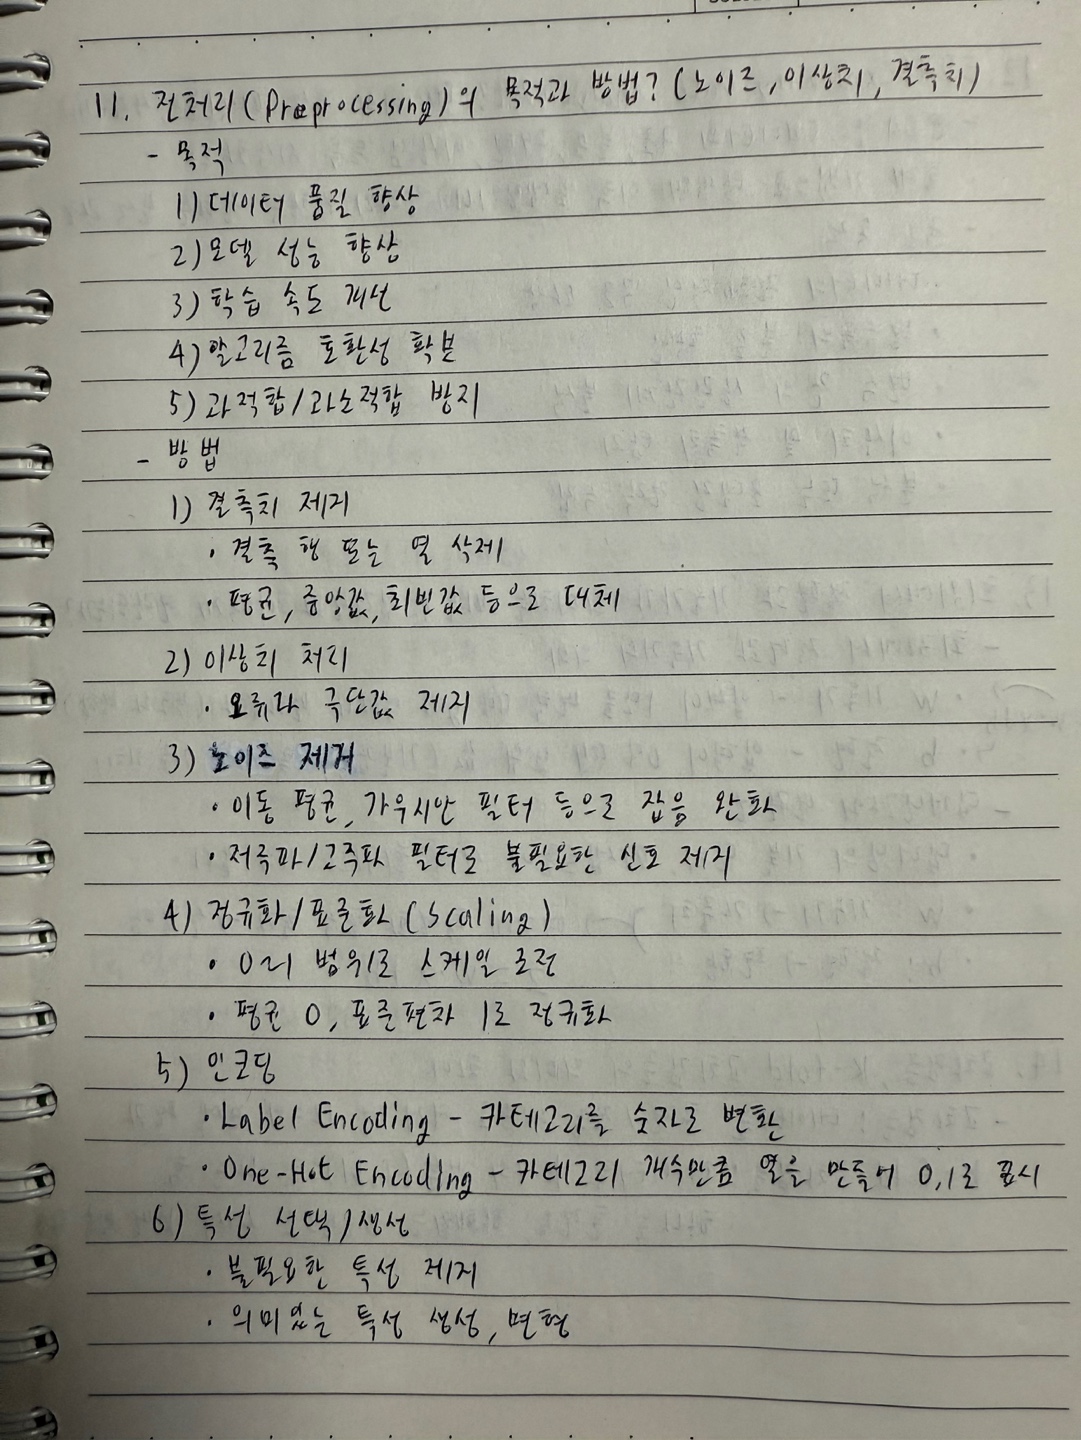 11. 전처리(Preprocessing)의 목적과 방법? (노이즈, 이상치, 결측치)
- 목적
1) 데이터 품질 향상
2) 모델 성능 향상
3) 학습 속도 개선
4) 알고리즘 호환성 확보
5) 과적합/과소적합 방지
- 방법
1) 결측치 제거
· 결측 행 또는 열 삭제
· 평균, 중앙값, 최빈값 등으로 대체
2) 이상치 처리
· 오류나 극단값 제거
3) 노이즈 제거
· 이동 평균, 가우시안 필터 등으로 잡음 완화
· 저주파/고주파 필터로 불필요한 신호 제거
4) 정규화/표준화 (Scaling)
· 0~1 범위로 스케일 조정
· 평균 0, 표준편차 1로 정규화
5) 인코딩
· Label Encoding - 카테고리를 숫자로 변환
· One-Hot Encoding - 카테고리 개수만큼 열을 만들어 0,1로 표시
6) 특성 선택/생성
· 불필요한 특성 제거
· 의미있는 특성 생성, 변형